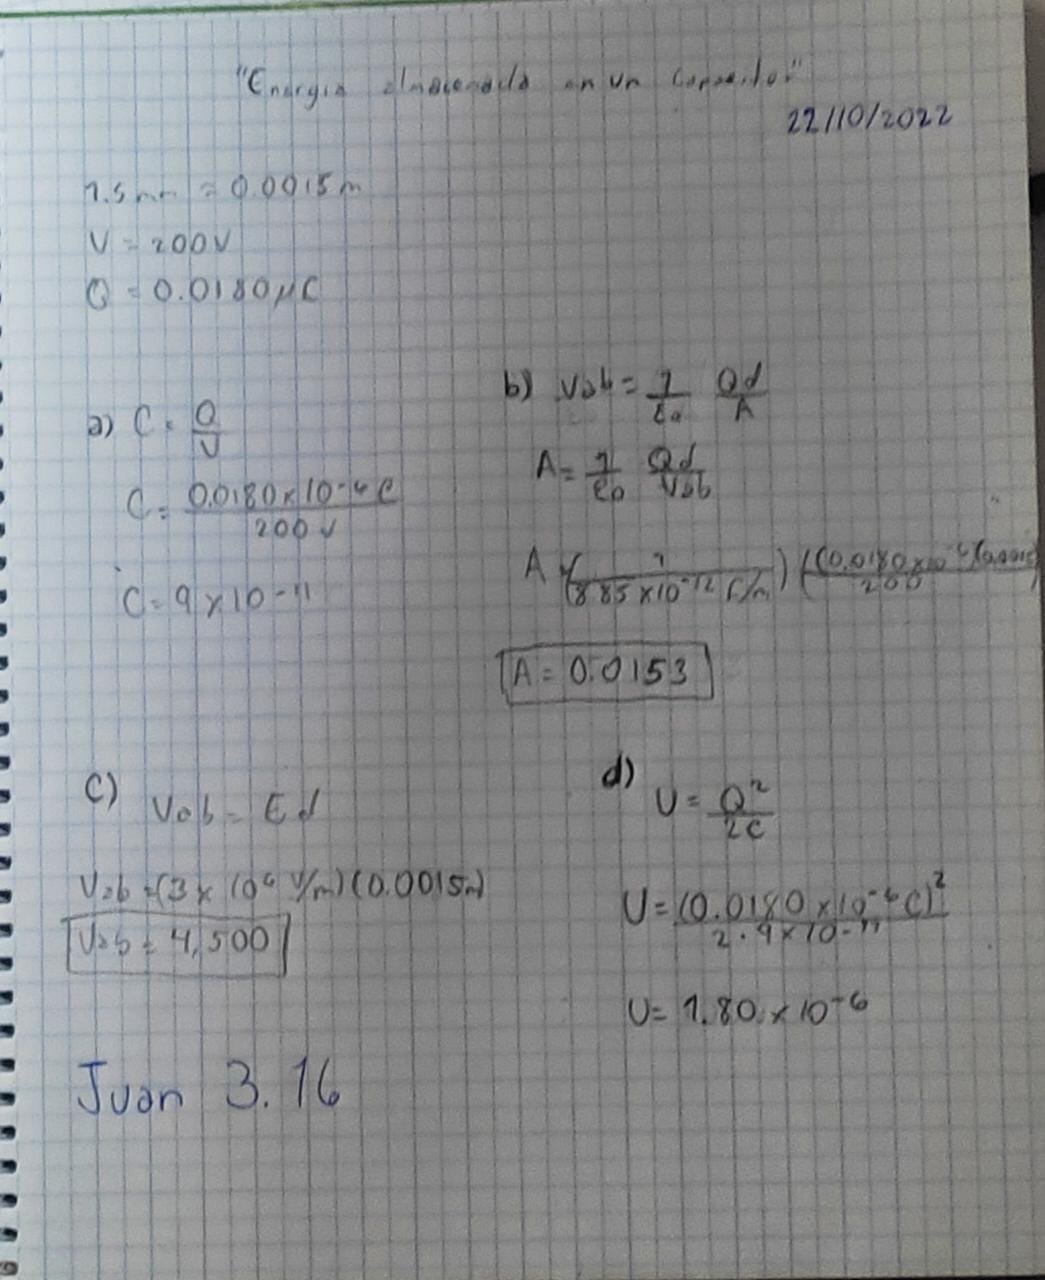 "Energia almacenada en un Capacitor"
22/10/2022
1.5 mm = 0.0015 m
V = 200V
Q = 0.0180 μC
a) C = Q/V
C = 0.0180 x 10^-6 C / 200 V
C = 9 x 10^-11
b) Vab = 1/ε0 Qd/A
A = 1/ε0 Qd/Vab
A = (1 / 8.85 x 10^-12 F/m) ((0.0180 x 10^-6)(0.0015) / 200)
A = 0.0153
c) Vab = Ed
Vab = (3 x 10^6 V/m) (0.0015m)
Vab = 4,500
d) U = Q^2 / 2C
U = (0.0180 x 10^-6 C)^2 / 2 · 9 x 10^-11
U = 1.80 x 10^-6
Juan 3.16